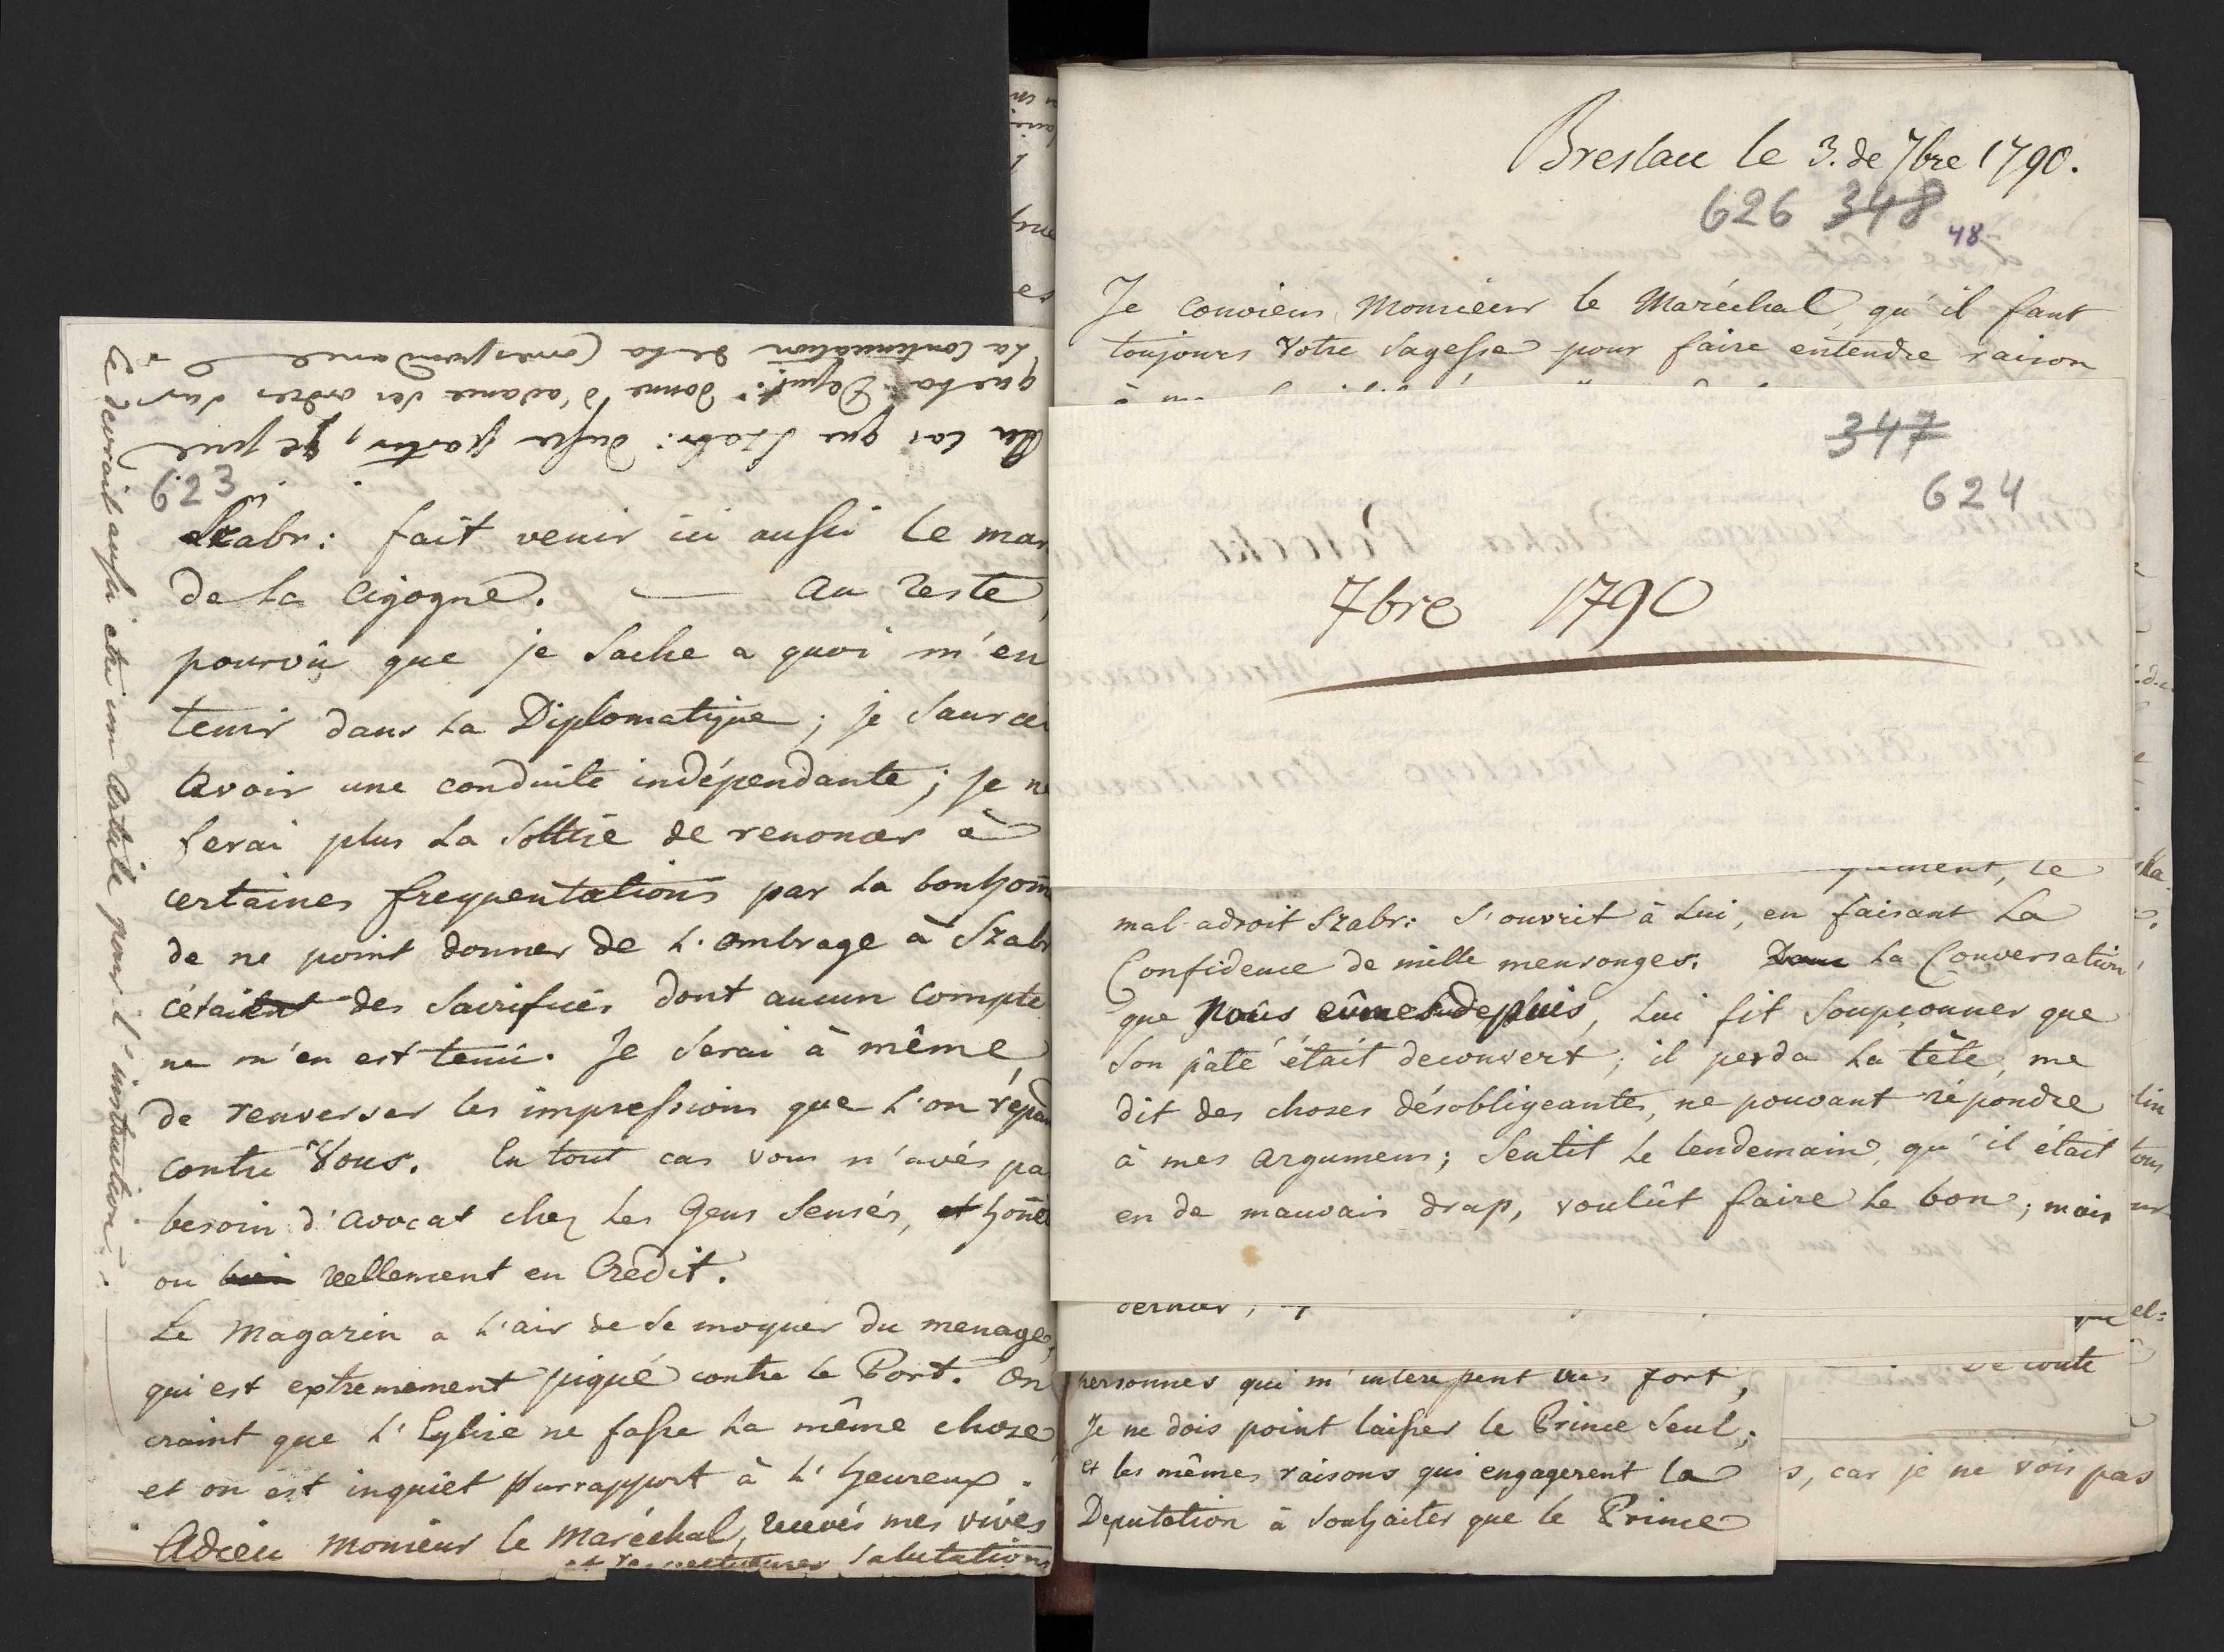 Au cas que Szabr: dusse partir, je prie
que la Deput: donne d'avance des ordres sur
la continuation de la Correspondance
Ce devrait aussi etre un Article pour l'instruction.
623
Szabr: fait venir ici aussi le mar
de la Cigogne. — Au reste,
pourvû que je sache a quoi m'en
tenir dans la Diplomatique; je saurai
avoir une conduite indépendante; je ne
ferai plus la sottise de renoncer à
certaines frequentations par la bonhom
de ne point donner de l'ombrage à Szabr
c'étaient des Sacrifices dont aucun compte
ne m'en est tenû. Je serai à même,
de renverser les impressions que l'on répan
contre Vous. En tout cas vous n'avés pa
besoin d'avocat chez les Gens sensés, et honê
ou bien reellement en Credit.
Le Magazin a l'air de se moquer du menage,
qui est extremement piqué contre le Port. On
craint que l'Eglise ne fasse la même chose
et on est inquiet par rapport à l'heureux.
Adieu Monsieur le Maréchal, recevés mes vives
et respectueuses salutations
Breslau le 3. de 7bre 1790.
626 348
48
Je conviens Monsieur le Maréchal, qu'il faut
toujours votre sagesse pour faire entendre raison
347
624
7bre 1790
le
mal-adroit Szabr: s'ouvrit à lui, en faisant la
Confidence de mille mensonges. Dans la Conversation
que nous eûmes depuis, lui fit soupçonner que
son pâté était decouvert; il perda la tête, me
dit des choses désobligeantes, ne pouvant répondre
à mes argumens; sentit le lendemain, qu'il était
en de mauvais drap, voulût faire le bon; mais
personnes qui m'interessent très fort,
Je ne dois point laisser le Prince seul;
et les mêmes raisons qui engagerent la
Deputation à souhaiter que le Prince
De toute
s, car je ne vois pas